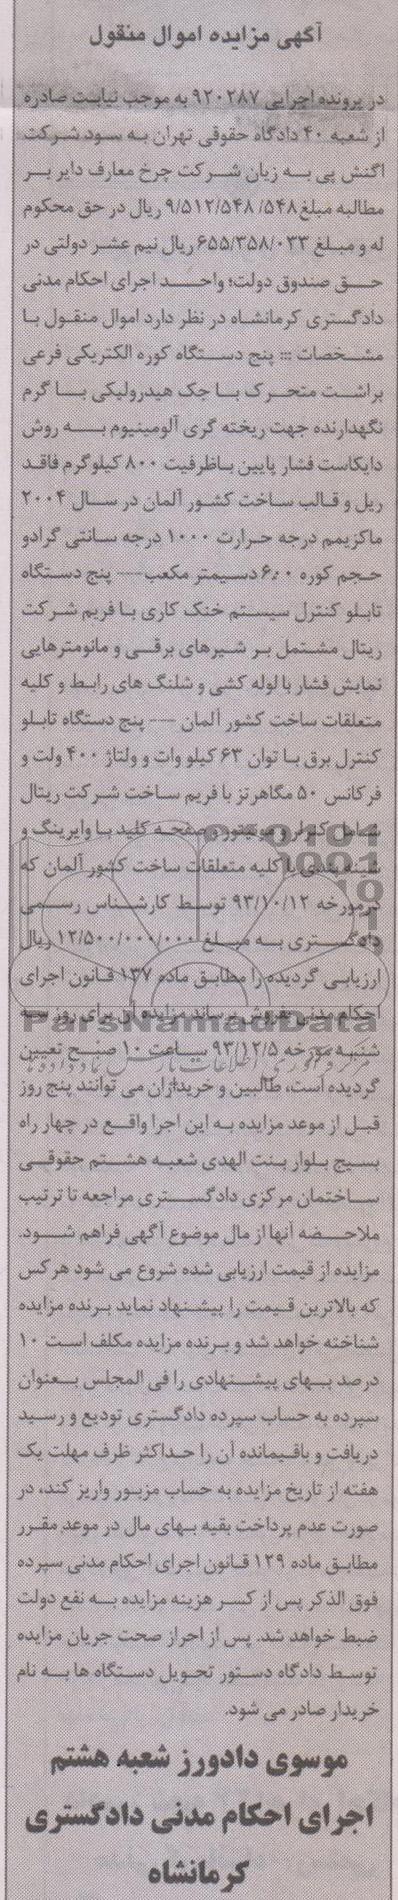 آگهی مزایده اموال منقول
در پرونده اجرایی ۹۲۰۲۸۷ به موجب نیابت صادره
از شعبه ۴۰ دادگاه حقوقی تهران به سود شرکت
اگنش پی به زیان شرکت چرخ معارف دایر بر
مطالبه مبلغ ۵۴۸/ ۹/۵۱۲/۵۴۸ ریال در حق محکوم
له و مبلغ ۶۵۵/۳۵۸/۰۳۳ ریال نیم عشر دولتی در
حق صندوق دولت؛ واحد اجرای احکام مدنی
دادگستری کرمانشاه در نظر دارد اموال منقول با
مشخصات ::: پنج دستگاه کوره الکتریکی فرعی
براشت متحرک با جک هیدرولیکی با گرم
نگهدارنده جهت ریخته گری آلومینیوم به روش
دایکاست فشار پایین باظرفیت ۸۰۰ کیلوگرم فاقد
ریل و قالب ساخت کشور آلمان در سال ۲۰۰۴
ماکزیمم درجه حرارت ۱۰۰۰ درجه سانتی گرادو
حجم کوره ۶۰۰ دسیمتر مکعب--- پنج دستگاه
تابلو کنترل سیستم خنک کاری با فریم شرکت
ریتال مشتمل بر شیرهای برقی و مانومترهایی
نمایش فشار با لوله کشی و شلنگ های رابط و کلیه
متعلقات ساخت کشور آلمان --- پنج دستگاه تابلو
کنترل برق با توان ۶۳ کیلو وات و ولتاژ ۴۰۰ ولت و
فرکانس ۵۰ مگاهرتز با فریم ساخت شرکت ریتال
شامل کنترلر و مونیتور و صفحه کلید با وایرینگ و
شینه بندی با کلیه متعلقات ساخت کشور آلمان که
درمورخه ۹۳/۱۰/۱۲ توسط کارشناس رسمی
دادگستری به مبلغ ۱۲/۵۰۰/۰۰۰/۰۰۰ ریال
ارزیابی گردیده را مطابق ماده ۱۳۷ قانون اجرای
احکام مدنی بفروش برساند مزایده آن برای روز سه
شنبه مورخه ۹۳/۱۲/۵ ساعت ۱۰ صبح تعیین
گردیده است، طالبین و خریداران می توانند پنج روز
قبل از موعد مزایده به این اجرا واقع در چهار راه
بسیج بلوار بنت الهدی شعبه هشتم حقوقی
ساختمان مرکزی دادگستری مراجعه تا ترتیب
ملاحضه آنها از مال موضوع آگهی فراهم شود.
مزایده از قیمت ارزیابی شده شروع می شود هرکس
که بالاترین قیمت را پیشنهاد نماید برنده مزایده
شناخته خواهد شد و برنده مزایده مکلف است ۱۰
درصد بهای پیشنهادی را فی المجلس بعنوان
سپرده به حساب سپرده دادگستری تودیع و رسید
دریافت و باقیمانده آن را حداکثر ظرف مهلت یک
هفته از تاریخ مزایده به حساب مزبور واریز کند، در
صورت عدم پرداخت بقیه بهای مال در موعد مقرر
مطابق ماده ۱۲۹ قانون اجرای احکام مدنی سپرده
فوق الذکر پس از کسر هزینه مزایده به نفع دولت
ضبط خواهد شد. پس از احراز صحت جریان مزایده
توسط دادگاه دستور تحویل دستگاه ها به نام
خریدار صادر می شود.
موسوی دادورز شعبه هشتم
اجرای احکام مدنی دادگستری
کرمانشاه
ParsNamadData